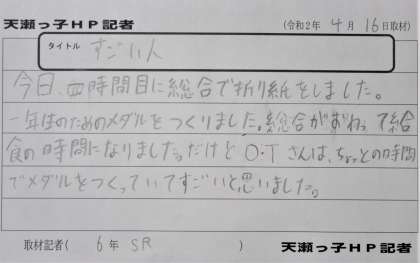 天瀬っ子HP記者 (令和2年 4月 16日取材)
タイトル すごい人
今日、四時間目に総合で折り紙をしました。
一年生のためのメダルをつくりました。総合がおわって給
食の時間になりました。だけど O・Tさんは、ちょっとの時間
でメダルをつくっていてすごいと思いました。
取材記者( 6年 SR ) 天瀬っ子HP記者